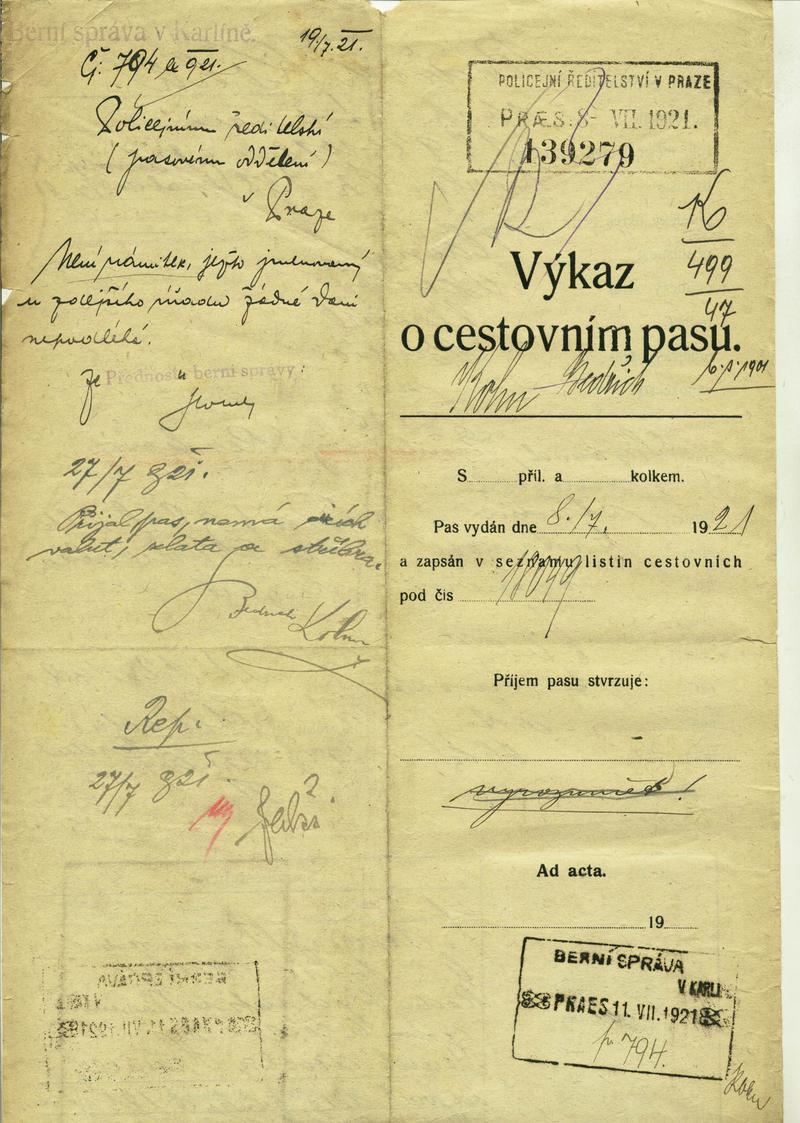 Berní správa v Karlíně.
19/7.21.
Č. 794 921.
Policejnímu ředitelství
(pasovému oddělení)
v Praze
Není námitek, ježto jmenovaný
u zdejšího úřadu žádné dani
nepodléhá.
Přednosta berní správy:
27/7
Přijal pas, nemá cizích
valut, zlata a stříbra.
Bedrich Kohn
Rep.
27/7
BERNÍ SPRÁVA
PRAES 11. VII. 1921
POLICEJNÍ ŘEDITELSTVÍ V PRAZE
PRÆS. 8- VII. 1921.
139279
K
499
47
Výkaz
o cestovním pasu.
Kohn Bedřich 1901
S příl. a kolkem.
Pas vydán dne 8./7. 1921
a zapsán v seznamu listin cestovních
pod čís 18099
Příjem pasu stvrzuje:
Ad acta.
19
BERNÍ SPRÁVA
V KARLÍ
PRAES 11. VII. 1921
794.
Kohn